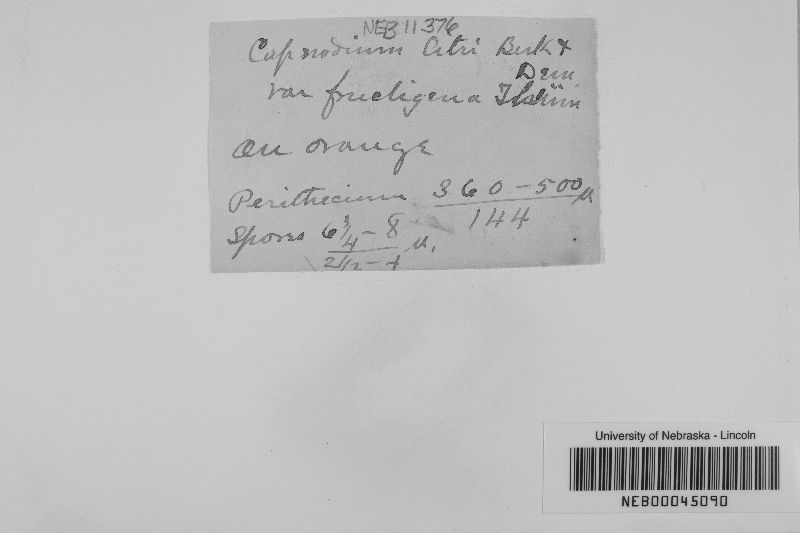 NEB 11376
Capnodium Citri Berk &
Dem
var fructigena
on orange
Perithecium 360-500 µ
144
Spores 6 3/4 - 8 µ.
2 1/2 - 4
University of Nebraska - Lincoln
NEB00045090